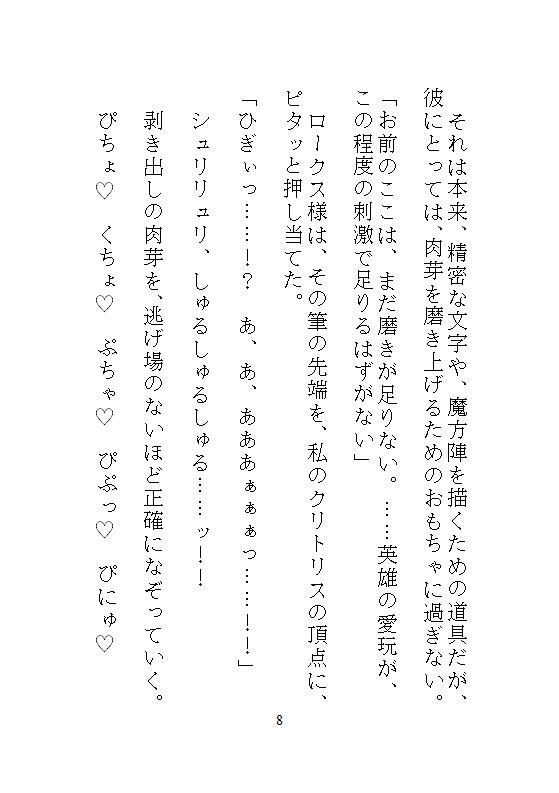 それは本来、精密な文字や、魔方陣を描くための道具だが、
彼にとっては、肉芽を磨き上げるためのおもちゃに過ぎない。
「お前のここは、まだ磨きが足りない。……英雄の愛玩が、
この程度の刺激で足りるはずがない」
ロークス様は、その筆の先端を、私のクリトリスの頂点に、
ピタッと押し当てた。
「ひぎぃっ……！？　あ、あ、あああぁぁぁっ……！！」
シュリリュリ、しゅるしゅるしゅる……ッ！！
剥き出しの肉芽を、逃げ場のないほど正確になぞっていく。
ぴちょ♡　くちょ♡　ぷちゃ♡　ぴぷっ♡　ぴにゅ♡
8